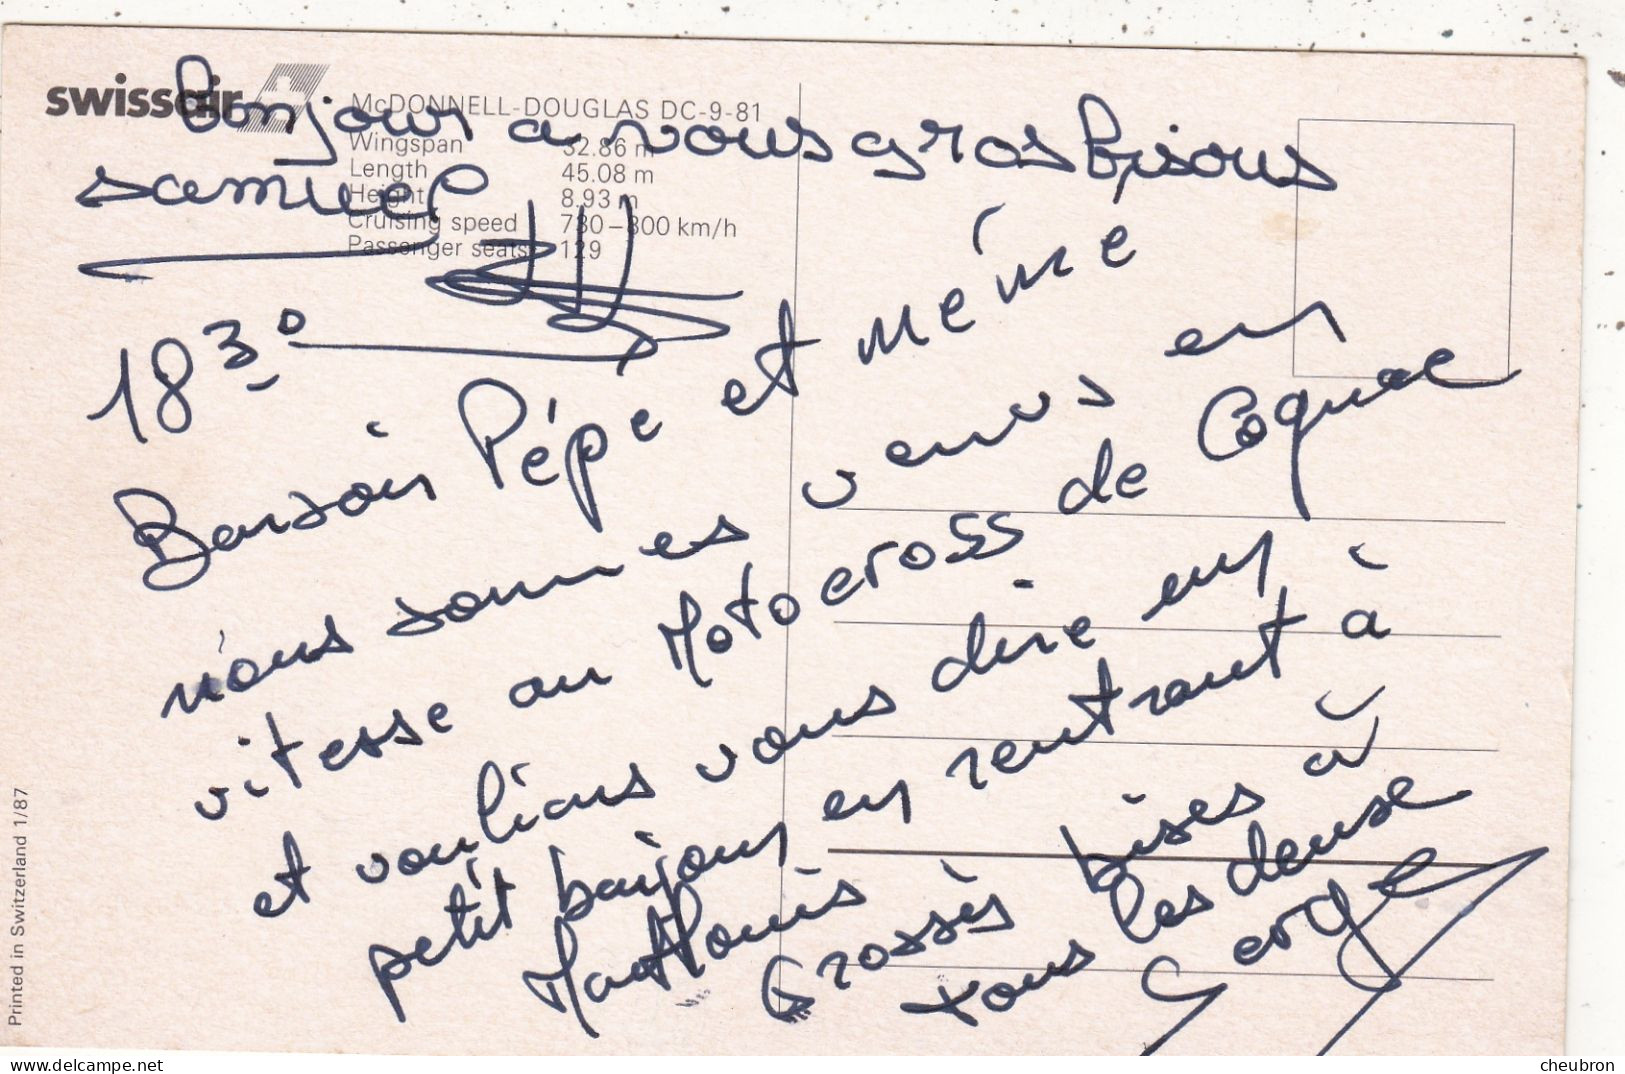 swissair
McDONNELL-DOUGLAS DC-9-81
Wingspan 32.86 m
Length 45.08 m
Height 8.93 m
Cruising speed 730–800 km/h
Passenger seats 129
Bonjour a vous gros bisous
samuel
18 3°
Bonsoir Pépé et mémé
nous sommes venus en
vitesse au Motocross de Cognac
et voulions vous dire un
petit bonjour en rentrant à
Grosses bises à
tous les deuse
Serge
Printed in Switzerland 1/87
cheubron.com